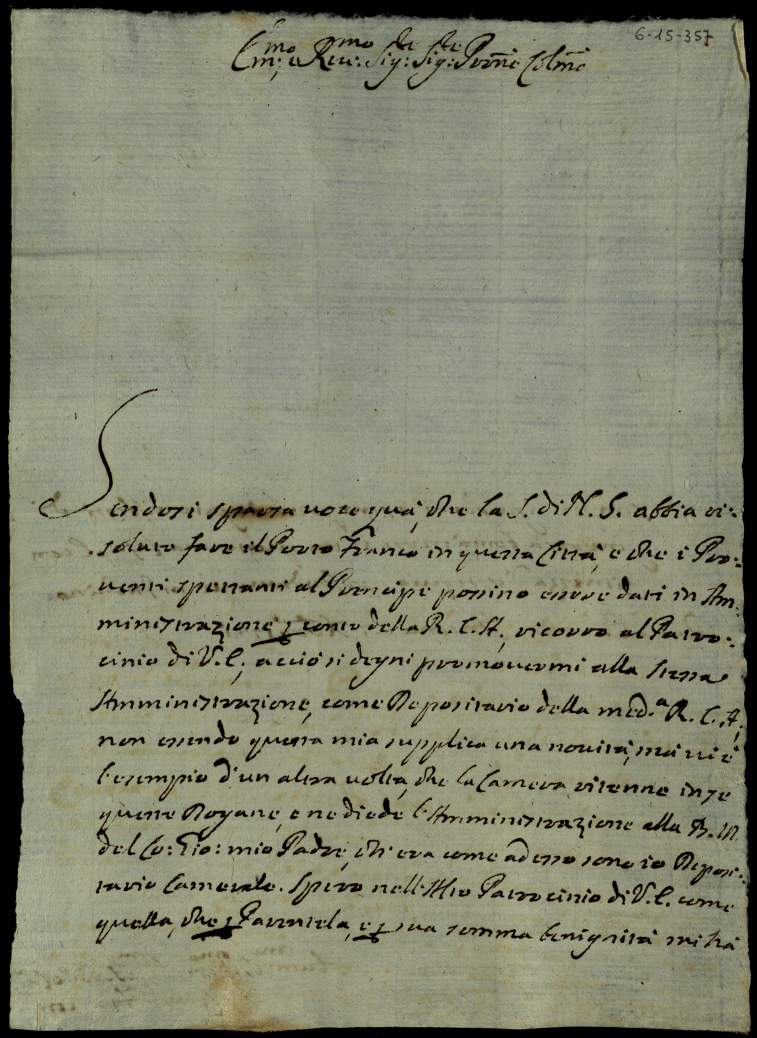 6-15-357
Em:mo e Rev:mo Sig:re Sig:re Pron̄e Colm̄o
Sendosi sparsa voce quà, che la S. di N. S. abbia ri:
soluto fare il Porto Franco in questa Città, e che i Pro:
venti spettanti al Principe possino essere dati in Am:
ministrazione ꝑ conto della R. C. A, ricorro al Patro:
cinio di V. E, acciò si degni promovermi alla stessa
Amministrazione, come Depositario della med.a R. C. A,
non essendo questa mia supplica una novità, mà vi è
l'esempio d'un altra volta, che la Camera ritenne in se
queste Dogane, e ne diede l'Amministrazione alla B. M.
del Co: Gio: mio Padre, ch'era come adesso sono io Deposi:
tario Camerale. Spero nell'Alto Patrocinio di V. E. come
quella, che ꝑ Parentela, e ꝑ sua somma benignità mi hà